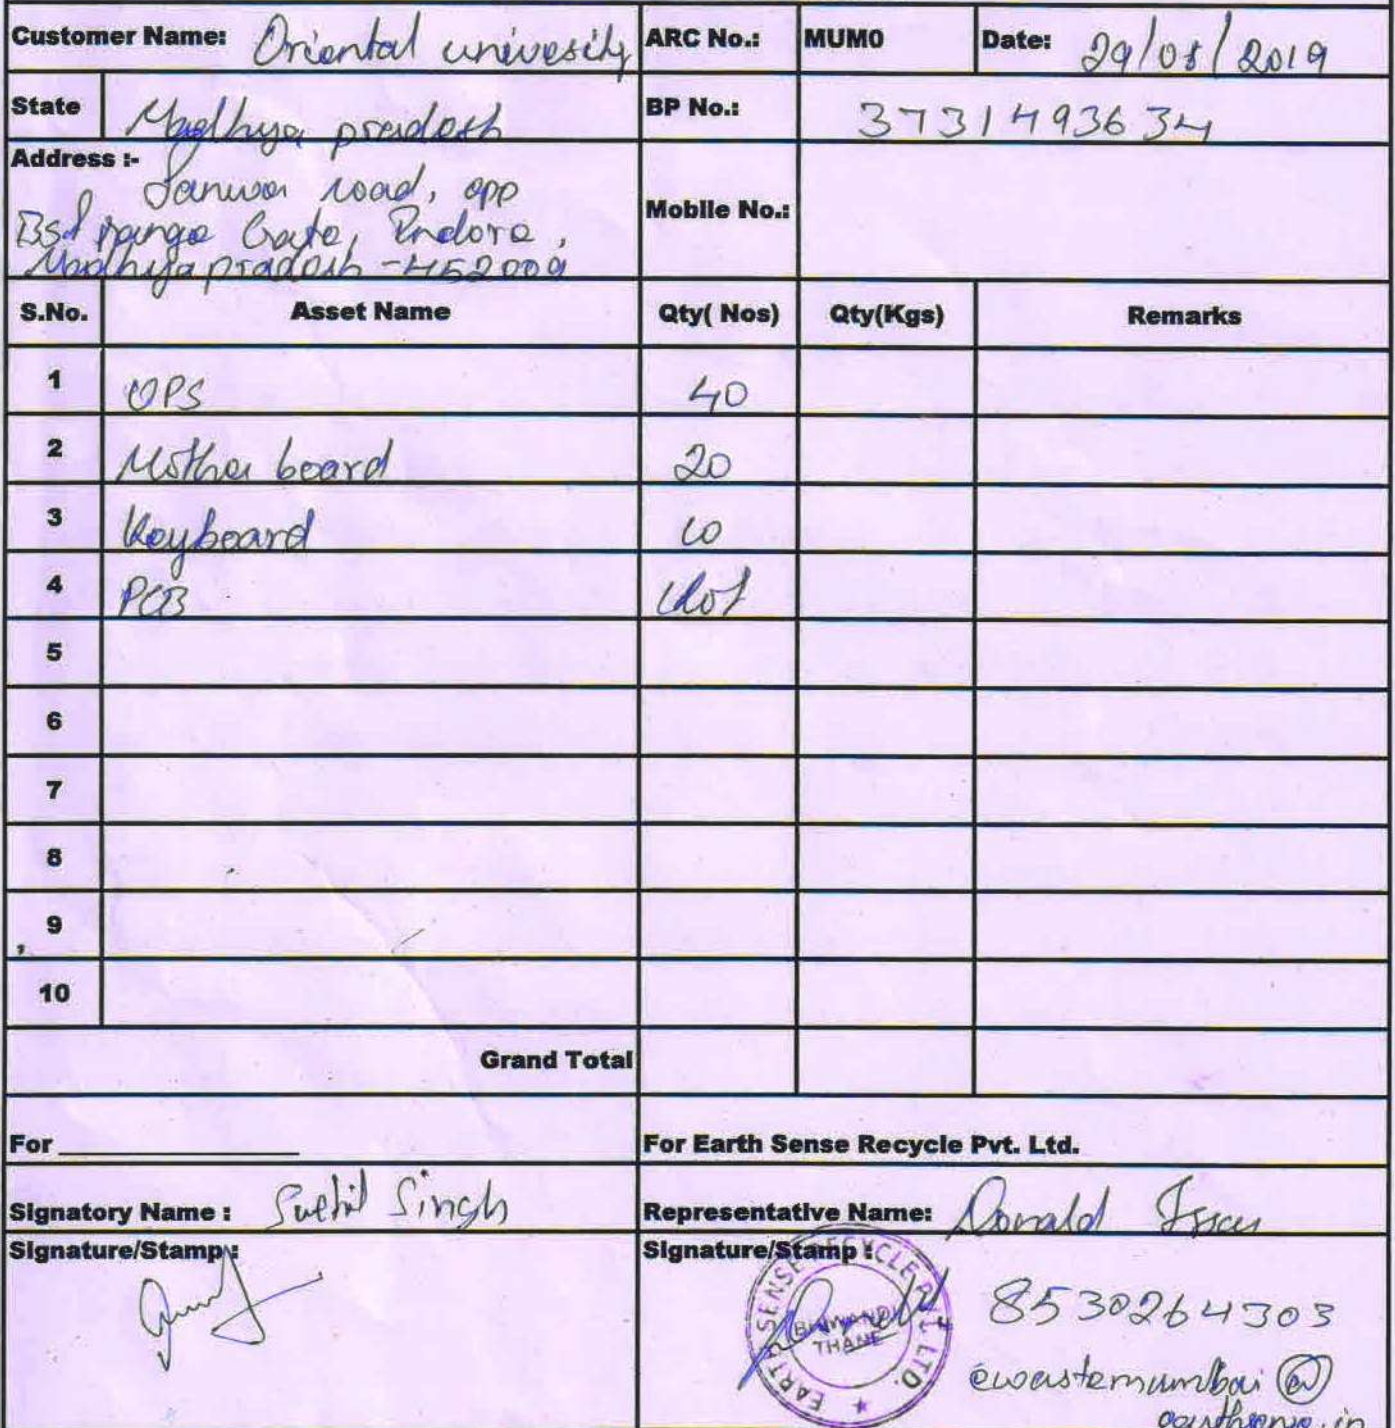 Customer Name: Oriental univesity ARC No.: MUM0 Date: 29/08/2019
State Madhya pradesh BP No.: 3731493634
Address :- Sanwer road, opp
Mobile No.:
Gate, Indore,
Madhya pradesh - 452009
S.No. Asset Name Qty( Nos) Qty(Kgs) Remarks
1 UPS 40
2 Mother board 20
3 Keyboard 10
4 PCB 1 lot
5
6
7
8
9
10
Grand Total
For For Earth Sense Recycle Pvt. Ltd.
Signatory Name : Singh Representative Name: Donald
Signature/Stamp : Signature/Stamp :
EARTH SENSE RECYCLE PVT. LTD.
BHIWANDI
THANE
8530264303
ewastemumbai@
earthsense.in